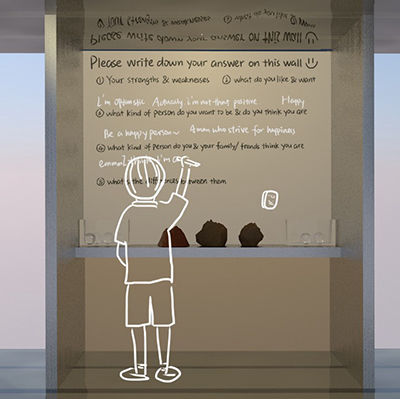 Please write down your answer on this wall
① Your strengths & weaknesses ② what do you like & want
I'm optimistic Actually i'm not that positive Happy
③ what kind of person do you want to be & do you think you are
Be a happy person~ A man who strive for happiness
④ what kind of person do you & your family/ friends think you are
i'm a
⑤ what's the differences between them